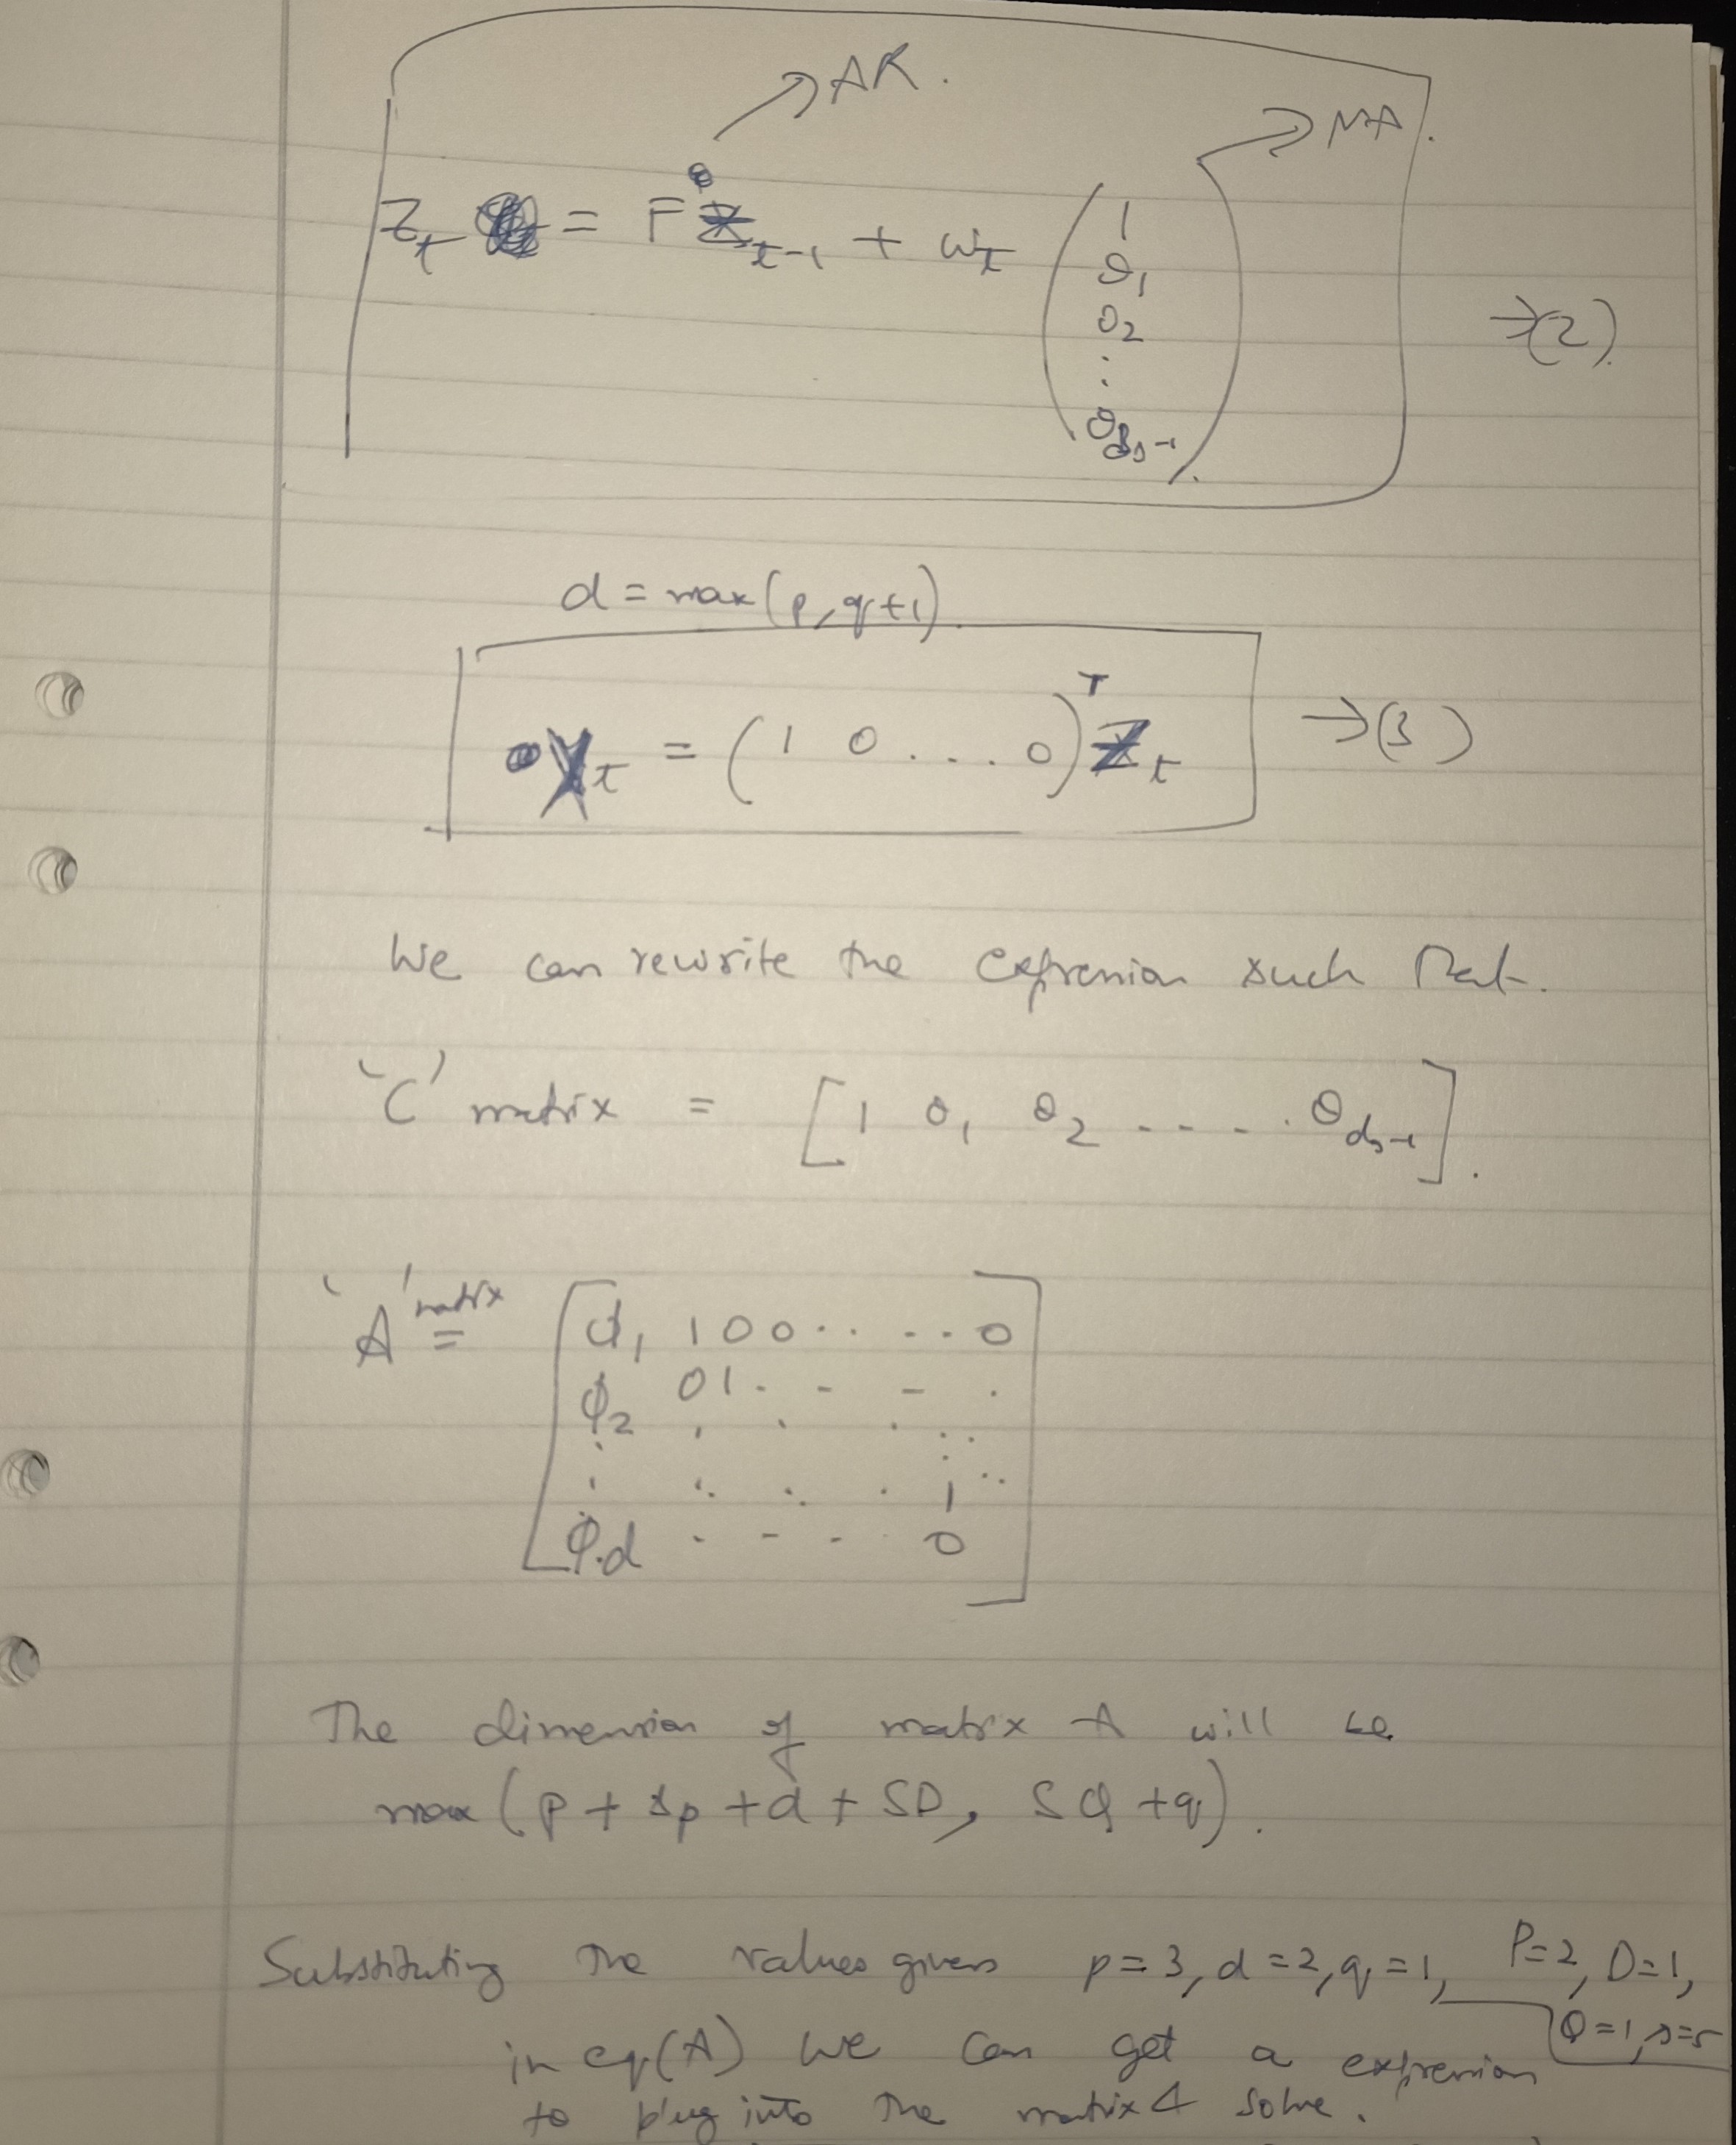 → AR.
→ MA.
Z_t = F Z_{t-1} + w_t ( 1 θ_1 θ_2 ⋮ θ_{ds-1} ) →(2).
d = max(p, q+1).
Y_t = (1 0 . . . 0)^T Z_t →(3)
We can rewrite the expression such that.
'C' matrix = [1 θ_1 θ_2 - - - - . θ_{ds-1}].
'A' matrix =
[ϕ_1 1 0 0 . . . - . 0
ϕ_2 0 1 . - - .
: . . . . :
: . . . 1 . .
ϕ_d . - - . 0]
The dimension of matrix A will be
max (p + sp + d + SD, SQ + q).
Substituting the values given p=3, d=2, q=1, P=2, D=1,
Q=1, s=5
in eq(A) we can get a expression
to plug into the matrix & solve.